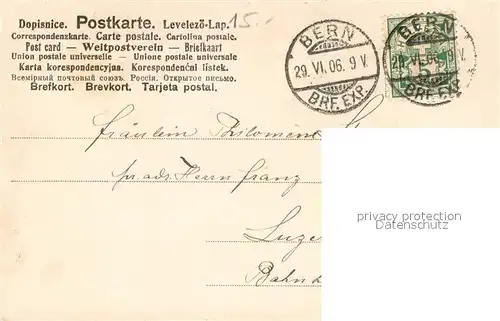 Dopisnice. Postkarte. Levelező-Lap. 15.-
Correspondenzkarte. Carte postale. Cartolina postale.
Post card — Weltpostverein — Briefkaart
Union postale universelle — Unione postale universale
Karta korespondencyjna. Korespondenční lístek.
Всемірный почтовый союзъ. Россія. Открытое письмо.
Brefkort. Brevkort. Tarjeta postal.
BERN
29. VI. 06. 9 V.
BRF. EXP.
BERN
29. VI. 06. 9 V.
BRF. EXP.
Fräulein Philomen
pr. adr. Herrn Franz
Luze
Bahn
privacy protection
Datenschutz